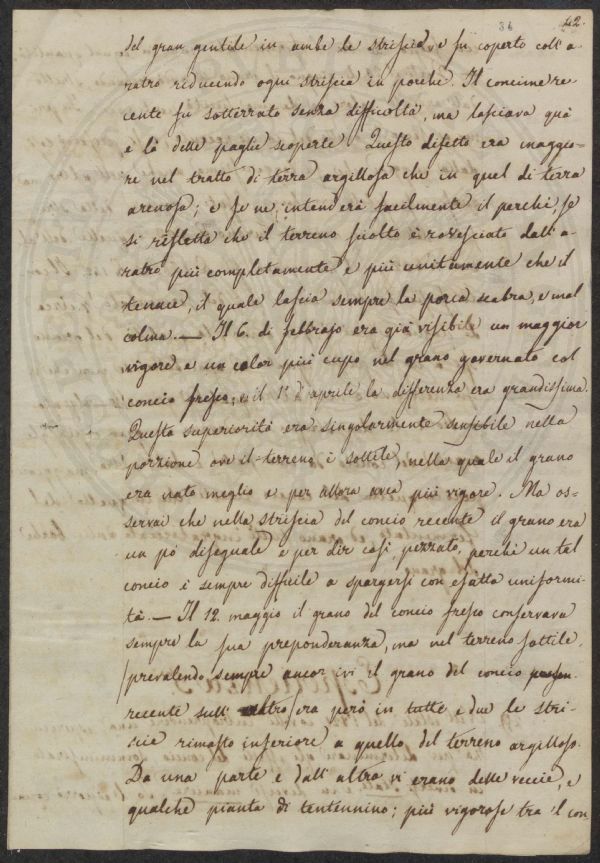 36 42.
del gran gentile in ambe le striscie, e fu coperto coll'a-
ratro riducendo ogni striscia in porche. Il concime re-
cente fu sotterrato senza difficoltà, ma lasciava quà
e là delle paglie scoperte. Questo difetto era maggio-
re nel tratto di terra argillosa che in quel di terra
arenosa; e se ne intenderà facilmente il perchè, se
si rifletta che il terreno sciolto è rovesciato dall'a-
ratro più completamente e più unitamente che il
tenace, il quale lascia sempre la porca scabra, e mal
colma. — Il 6. di febbrajo era già visibile un maggior
vigore e un color più cupo nel grano governato col
concio fresco; e il 1.° d'aprile la differenza era grandissima.
Questa superiorità era singolarmente sensibile nella
porzione ove il terreno è sottile, nella quale il grano
era nato meglio e per allora avea più vigore. Ma os=
servai che nella striscia del concio recente il grano era
un pò diseguale e per dir così, pezzato, perchè un tal
concio è sempre difficile a spargersi con esatta uniformi-
tà. — Il 12. maggio il grano del concio fresco conservava
sempre la sua preponderanza, ma nel terreno sottile,
(prevalendo sempre ancor ivi il grano del concio
recente sull' altro) era però in tutte e due le stri-
scie rimasto inferiore a quello del terreno argilloso.
Da una parte e dall'altra vi erano delle veccie, e
qualche pianta di tentennino; più vigorose tra 'l con